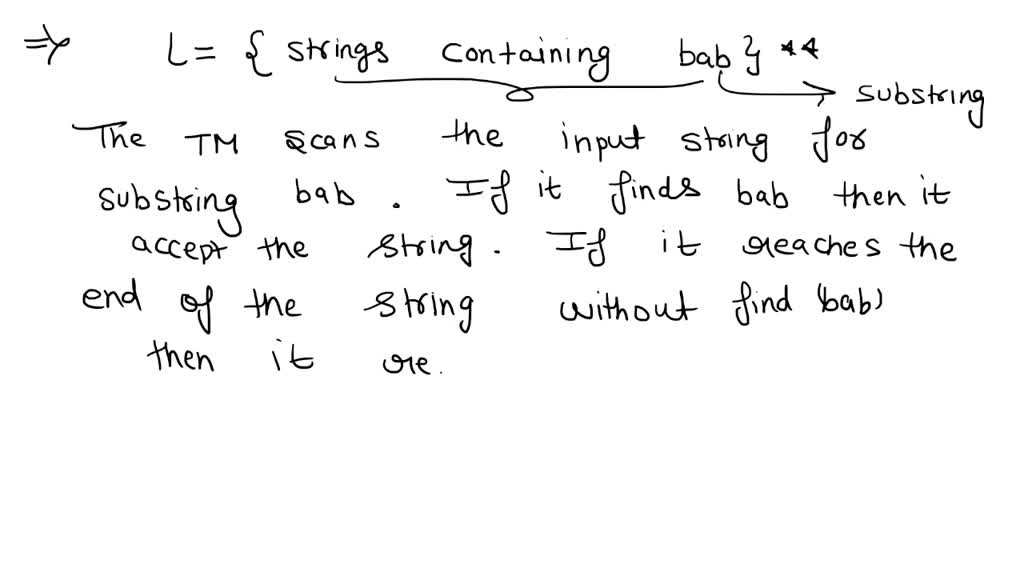 ⇒ L = { strings containing bab } **
substring
The TM scans the input string for
substring bab. If it finds bab then it
accept the string. If it reaches the
end of the string without find (bab)
then it re.